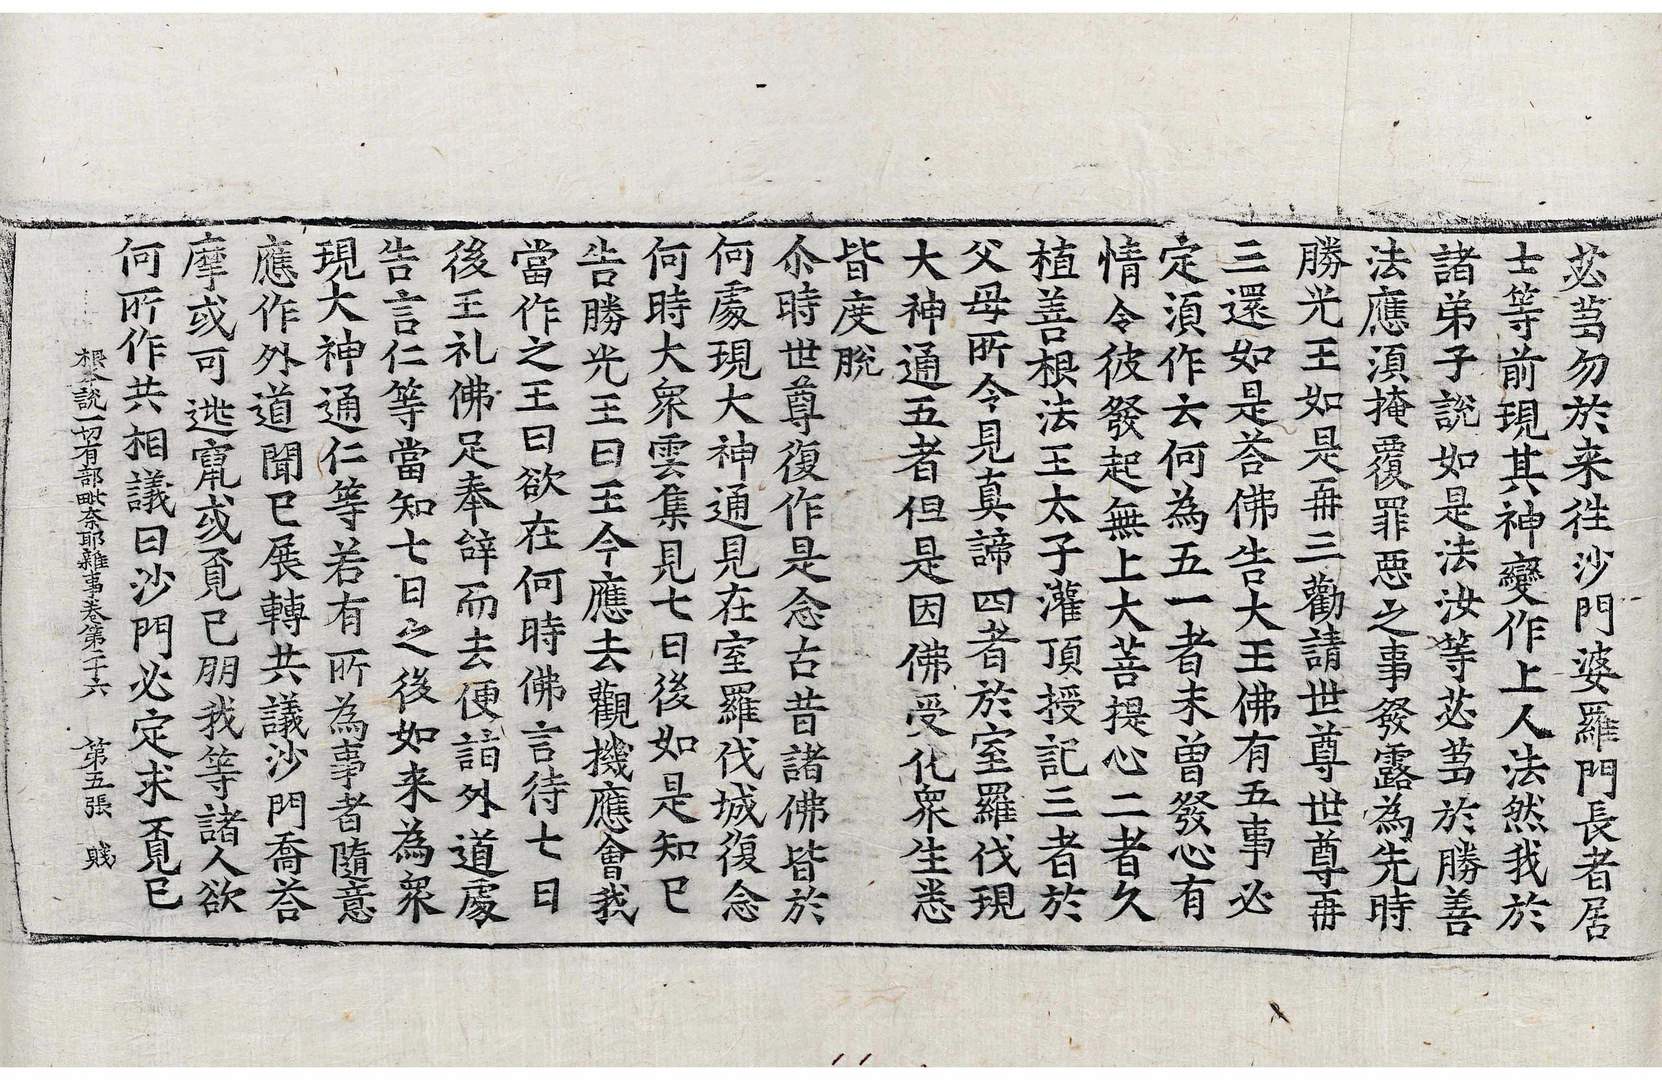 苾芻勿於来往沙門婆羅門長者居
士等前現其神變作上人法然我於
諸弟子說如是法汝等苾芻於勝善
法應湏掩覆罪惡之事發露為先時
勝光王如是再三勸請世尊世尊再
三還如是荅佛告大王佛有五事必
定湏作云何為五一者未曾發心有
情令彼發起無上大菩提心二者久
植善根法王太子灌頂授記三者於
父母所令見真諦四者於室羅伐現
大神通五者但是因佛受化衆生悉
皆度脫
尒時世尊復作是念古昔諸佛皆於
何處現大神通見在室羅伐城復念
何時大衆雲集見七日後如是知已
告勝光王曰王今應去觀機應會我
當作之王曰欲在何時佛言待七日
後王礼佛足奉辝而去便詣外道處
告言仁等當知七日之後如来為衆
現大神通仁等若有所為事者隨意
應作外道聞已展轉共議沙門喬荅
摩或可逃竄或覓已朋我等諸人欲
何所作共相議曰沙門必定求覓已
根本說一切有部毗奈耶雜事卷第二十六 第五張 賤